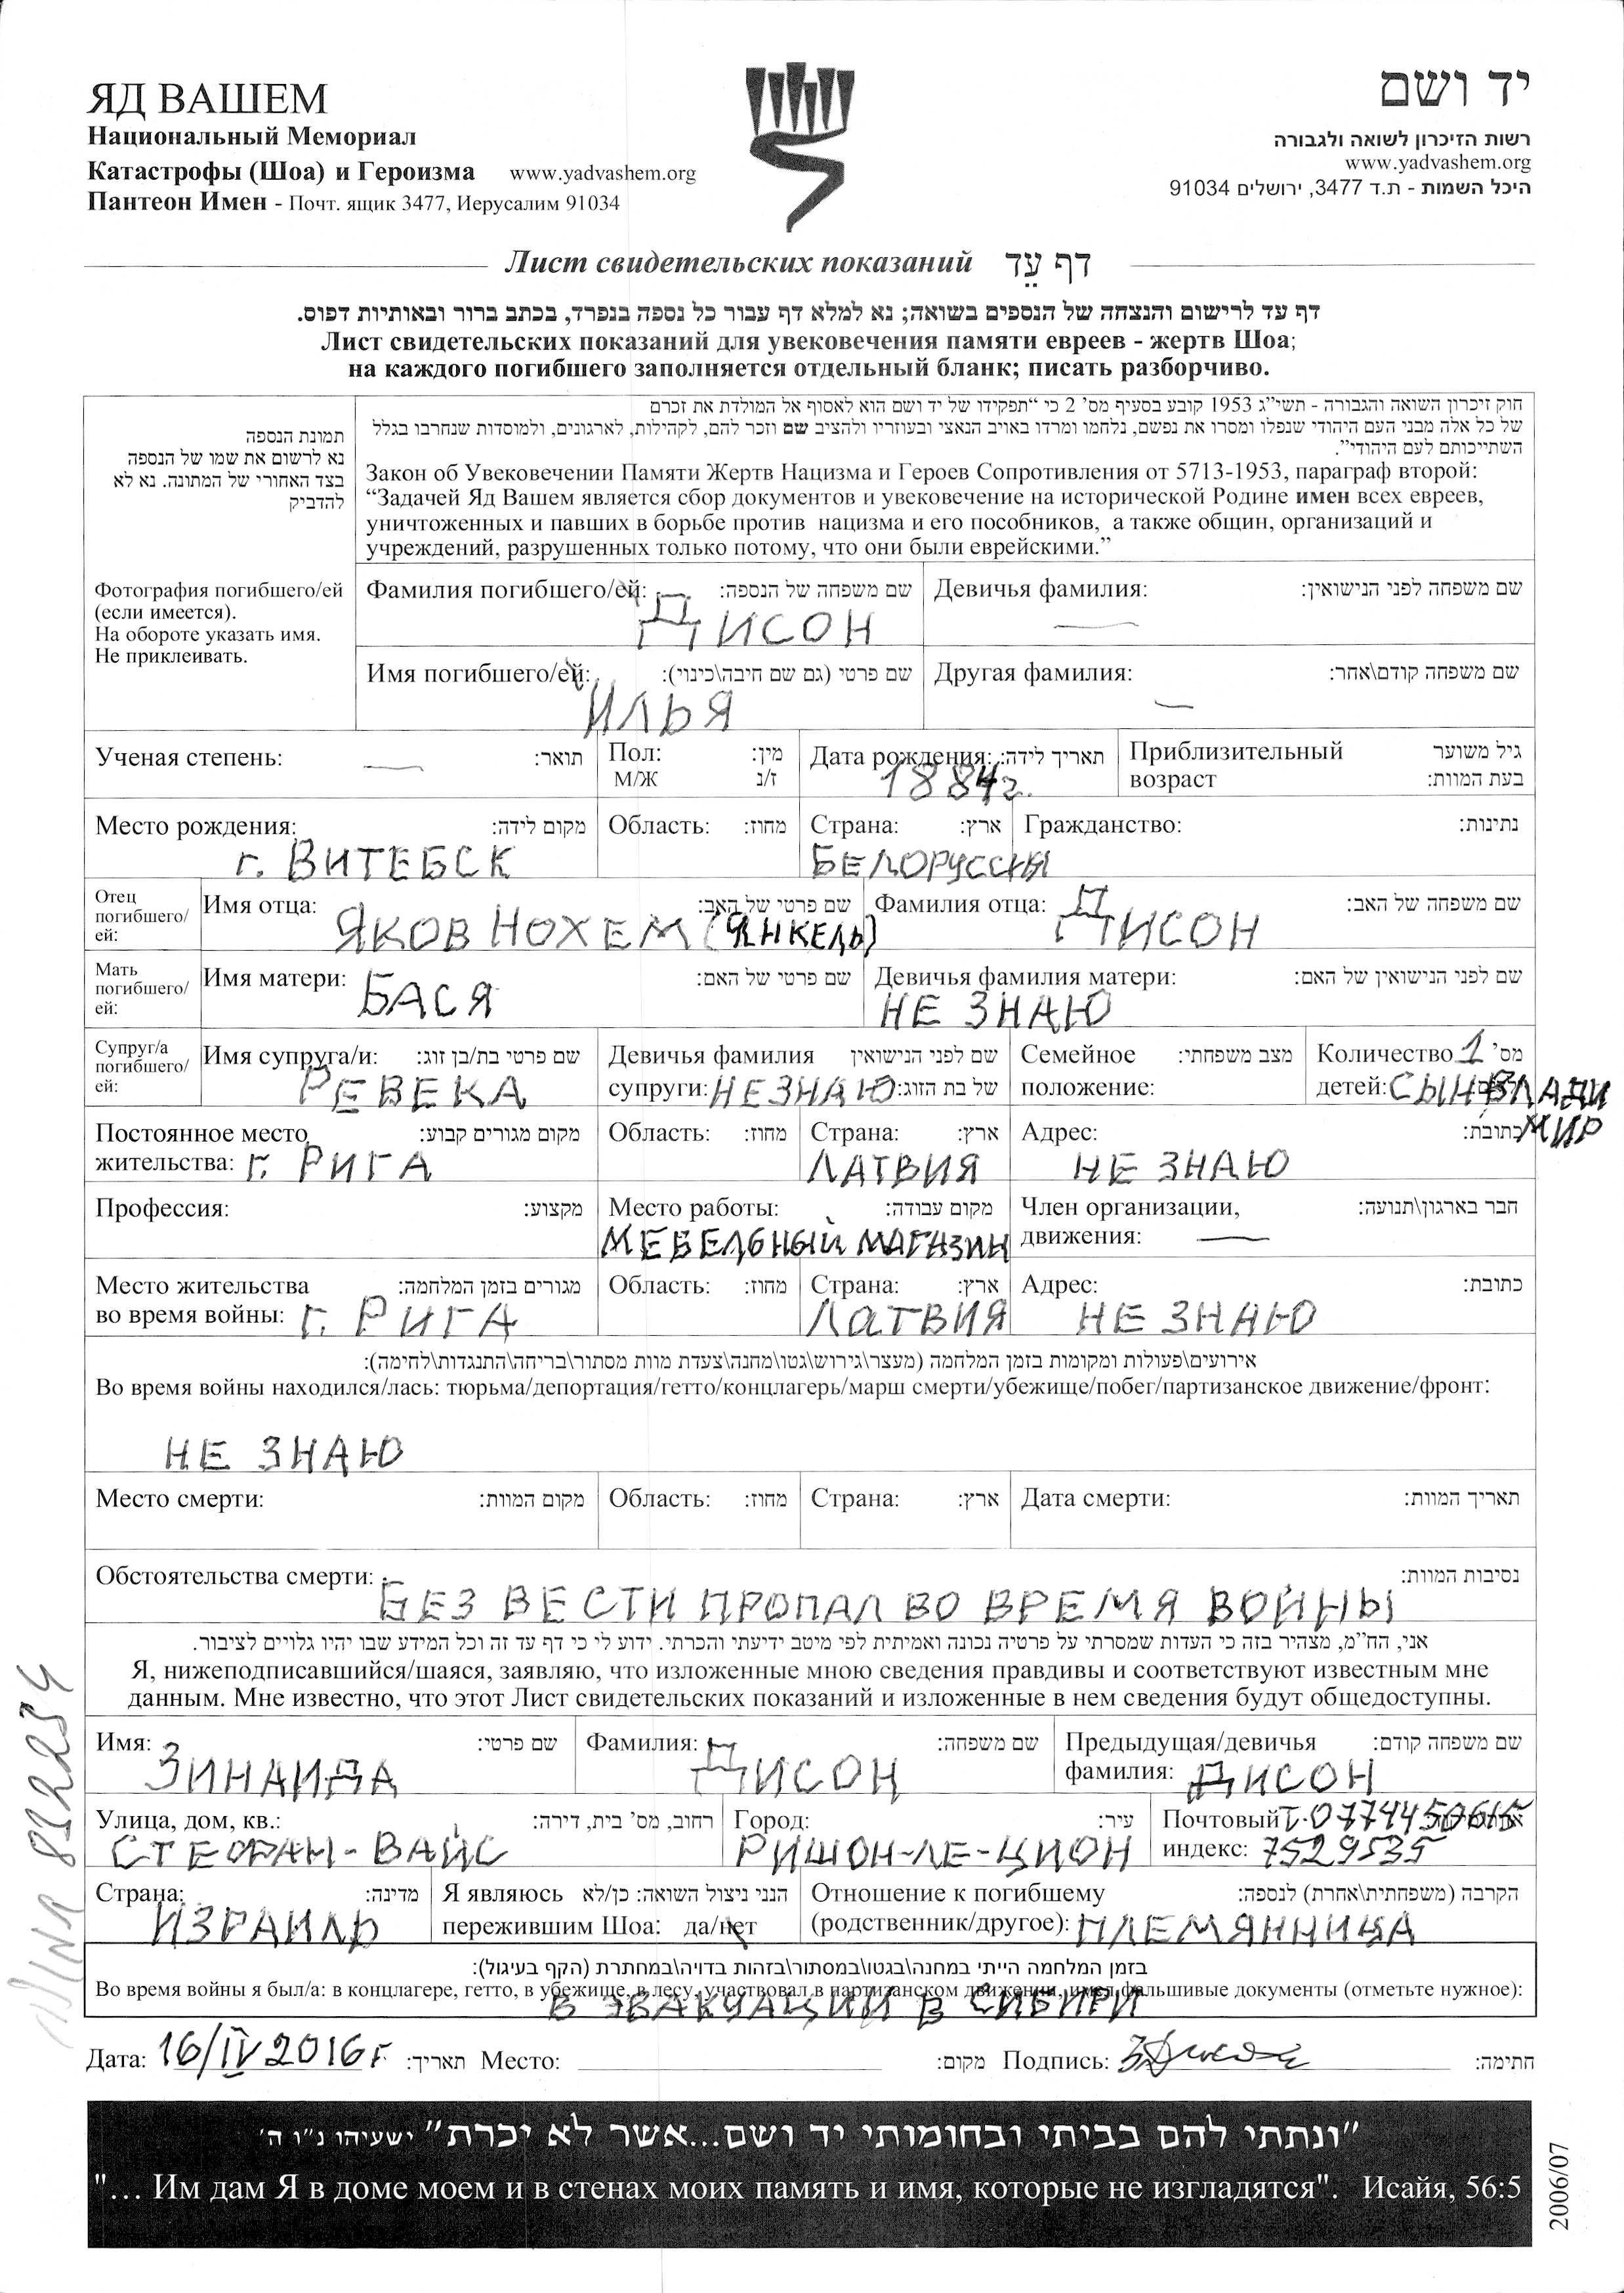 ЯД ВАШЕМ
יד ושם
Национальный Мемориал
רשות הזיכרון לשואה ולגבורה
Катастрофы (Шоа) и Героизма www.yadvashem.org
www.yadvashem.org
Пантеон Имен - Почт. ящик 3477, Иерусалим 91034
היכל השמות - ת.ד 3477, ירושלים 91034
Лист свидетельских показаний דף עֵד
דף עד לרישום והנצחה של הנספים בשואה; נא למלא דף עבור כל נספה בנפרד, בכתב ברור ובאותיות דפוס.
Лист свидетельских показаний для увековечения памяти евреев - жертв Шоа;
на каждого погибшего заполняется отдельный бланк; писать разборчиво.
תמונת הנספה
נא לרשום את שמו של הנספה
בצד האחורי של המתונה. נא לא
להדביק
Фотография погибшего/ей
(если имеется).
На обороте указать имя.
Не приклеивать.
חוק זיכרון השואה והגבורה - תשי"ג 1953 קובע בסעיף מס' 2 כי "תפקידו של יד ושם הוא לאסוף אל המולדת את זכרם
של כל אלה מבני העם היהודי שנפלו ומסרו את נפשם, נלחמו ומרדו באויב הנאצי ובעוזריו ולהציב שם וזכר להם, לקהילות, לארגונים, ולמוסדות שנחרבו בגלל
השתייכותם לעם היהודי".
Закон об Увековечении Памяти Жертв Нацизма и Героев Сопротивления от 5713-1953, параграф второй:
“Задачей Яд Вашем является сбор документов и увековечение на исторической Родине имен всех евреев,
уничтоженных и павших в борьбе против нацизма и его пособников, а также общин, организаций и
учреждений, разрушенных только потому, что они были еврейскими.”
Фамилия погибшего/ей: שם משפחה של הנספה:
ДИСОН
Девичья фамилия: שם משפחה לפני הנישואין:
Имя погибшего/ей: שם פרטי (גם שם חיבה\כינוי):
ИЛЬЯ
Другая фамилия: שם משפחה קודם\אחר:
Ученая степень: תואר:
Пол: מין:
М/Ж ז/נ
Дата рождения: תאריך לידה:
1884г.
Приблизительный גיל משוער
возраст בעת המוות:
Место рождения: מקום לידה:
г. ВИТЕБСК
Область: מחוז:
Страна: ארץ:
БЕЛОРУССИЯ
Гражданство: נתינות:
Отец
погибшего/
ей:
Имя отца: שם פרטי של האב:
ЯКОВ НОХЕМ (ЯНКЕЛЬ)
Фамилия отца: שם משפחה של האב:
ДИСОН
Мать
погибшего/
ей:
Имя матери: שם פרטי של האם:
БАСЯ
Девичья фамилия матери: שם לפני הנישואין של האם:
НЕ ЗНАЮ
Супруг/а
погибшего/
ей:
Имя супруга/и: שם פרטי בת/בן זוג:
РЕВЕКА
Девичья фамилия שם לפני הנישואין
супруги: НЕ ЗНАЮ של בת הזוג:
Семейное מצב משפחתי:
положение:
Количество 1 מס'
детей: СЫН ВЛАДИ
МИР
Постоянное место מקום מגורים קבוע:
жительства: г. РИГА
Область: מחוז:
Страна: ארץ:
ЛАТВИЯ
Адрес: כתובת:
НЕ ЗНАЮ
Профессия: מקצוע:
Место работы: מקום עבודה:
МЕБЕЛЬНЫЙ МАГАЗИН
Член организации, חבר בארגון\תנועה:
движения:
Место жительства מגורים בזמן המלחמה:
во время войны: г. РИГА
Область: מחוז:
Страна: ארץ:
ЛАТВИЯ
Адрес: כתובת:
НЕ ЗНАЮ
אירועים\פעולות ומקומות בזמן המלחמה (מעצר\גירוש\גטו\מחנה\צעדת מוות מסתור\בריחה\התנגדות\לחימה):
Во время войны находился/лась: тюрьма/депортация/гетто/концлагерь/марш смерти/убежище/побег/партизанское движение/фронт:
НЕ ЗНАЮ
Место смерти: מקום המוות:
Область: מחוז:
Страна: ארץ:
Дата смерти: תאריך המוות:
Обстоятельства смерти: נסיבות המוות:
БЕЗ ВЕСТИ ПРОПАЛ ВО ВРЕМЯ ВОЙНЫ
אני, הח"מ, מצהיר בזה כי העדות שמסרתי על פרטיה נכונה ואמיתית לפי מיטב ידיעתי והכרתי. ידוע לי כי דף עד זה וכל המידע שבו יהיו גלויים לציבור.
Я, нижеподписавшийся/шаяся, заявляю, что изложенные мною сведения правдивы и соответствуют известным мне
данным. Мне известно, что этот Лист свидетельских показаний и изложенные в нем сведения будут общедоступны.
Имя: שם פרטי:
ЗИНАИДА
Фамилия: שם משפחה:
ДИСОН
Предыдущая/девичья שם משפחה קודם:
фамилия: ДИСОН
Улица, дом, кв.: רחוב, מס' בית, דירה:
СТЕФАН-ВАЙС
Город: עיר:
РИШОН-ЛЕ-ЦИОН
Почтовый т. 0774450615
индекс: 7529535
Страна: מדינה:
ИЗРАИЛЬ
Я являюсь הנני ניצול השואה: כן/לא
пережившим Шоа: да/нет
Отношение к погибшему הקרבה (משפחתית\אחרת) לנספה:
(родственник/другое): ПЛЕМЯННИЦА
בזמן המלחמה הייתי במחנה\בגטו\במסתור\בזהות בדויה\במחתרת (הקף בעיגול):
Во время войны я был/а: в концлагере, гетто, в убежище, в лесу, участвовал в партизанском движении, имел фальшивые документы (отметьте нужное):
В ЭВАКУАЦИИ В СИБИРИ
Дата: 16/IV 2016г תאריך: Место: מקום: Подпись: חתימה:
"ונתתי להם בביתי ובחומותי יד ושם...אשר לא יכרת" ישעיהו נ"ו ה'
"… Им дам Я в доме моем и в стенах моих память и имя, которые не изгладятся". Исайя, 56:5
2006/07